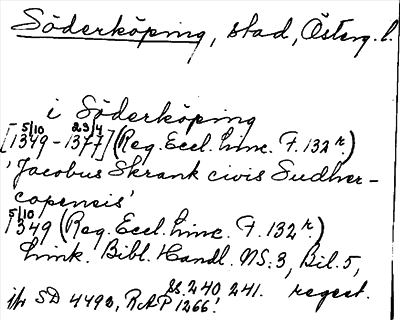 Söderköping, stad, Österg. l.
i Söderköping
5/10 23/4
[1349-1377] (Reg. Eccl. Linc. F. 132 r.)
'Jacobus Skrank civis Sudher-
copensis'
5/10
1349 (Reg. Eccl. Linc. F. 132 r.)
Link. Bibl. Handl. NS:3, Bil. 5,
ss. 240 241. regest.
jfr SD 4490, RAP 1266.